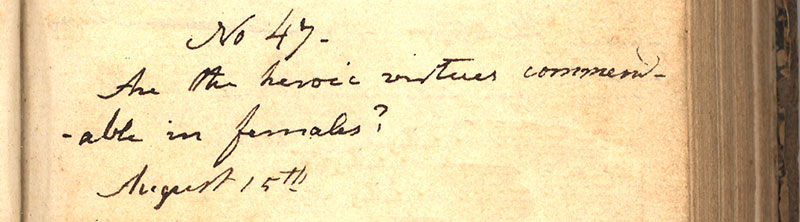 No 47-
Are the heroic virtues commend-
-able in females?
August 15th